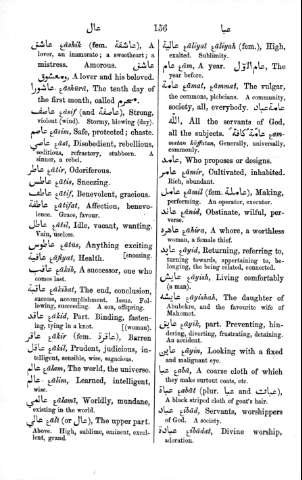 عال
156
عبا
عاشق āshiḳ (fem. عاشقة), A
lover, an inamorato; a sweetheart; a
mistress. Amorous.
عاشق
ومعشوق A lover and his beloved.
عاشورا āshūrā, The tenth day of
the first month, called محرم.
عاصف āsif (and عاصفة), Strong,
violent (wind). Stormy, blowing (day).
عاصم āsim, Safe, protected; chaste.
عاصي āsī, Disobedient, rebellious,
seditious, refractory, stubborn. A
sinner, a rebel.
عاطر āṭir, Odoriferous.
عاطس āṭis, Sneezing.
عاطف āṭif, Benevolent, gracious.
عاطفة āṭifat, Affection, benevo-
lence. Grace, favour.
عاطل āṭil, Idle, vacant, wanting.
Vain, useless.
عاطوس āṭūs, Anything exciting
[sneezing.
عافية āfiyat, Health.
عاقب āḳib, A successor, one who
comes last.
عاقبة āḳibat, The end, conclusion,
success, accomplishment. Issue. Fol-
lowing, succeeding. A son, offspring.
عاقد āḳid, Part. Binding, fasten-
ing, tying in a knot. [(woman).
عاقر āḳir (fem. عاقرة), Barren
عاقل āḳil, Prudent, judicious, in-
telligent, sensible, wise, sagacious.
عالم ālam, The world, the universe.
عالم ālim, Learned, intelligent,
wise.
عالمي ālamī, Worldly, mundane,
existing in the world.
عالي ālī (or عال), The upper part.
Above. High, sublime, eminent, excel-
lent, grand.
عالية āliyat āliyah (fem.), High,
exalted. Sublimity.
عام ām, A year. عام الاول, The
year before.
عامة āmat, āmmat, The vulgar,
the commons, plebeians. A community,
society, all, everybody. عامة عباد
الله, All the servants of God,
all the subjects. عامة كافة ām-
matan kāffatan, Generally, universally,
commonly.
عامد āmid, Who proposes or designs.
عامر āmir, Cultivated, inhabited.
Rich, abundant.
عامل āmil (fem. عاملة), Making,
performing. An operator, executor.
عاند ānid, Obstinate, wilful, per-
verse.
عاهرة āhira, A whore, a worthless
woman, a female thief.
عايد āyid, Returning, referring to,
turning towards, appertaining to, be-
longing, the being related, connected.
عايش āyish, Living comfortably
(a man).
عايشة āyishah, The daughter of
Abubekr, and the favourite wife of
Mahomet.
عايق āyiḳ, part. Preventing, hin-
dering, diverting, frustrating, detaining.
An accident.
عاين āyin, Looking with a fixed
and malignant eye.
عبا abā, A coarse cloth of which
they make surtout coats, etc.
عباة abāt (plur. عبا and عبيات),
A black striped cloth of goat's hair.
عباد ibād, Servants, worshippers
of God. A society.
عبادة ibādat, Divine worship,
adoration.